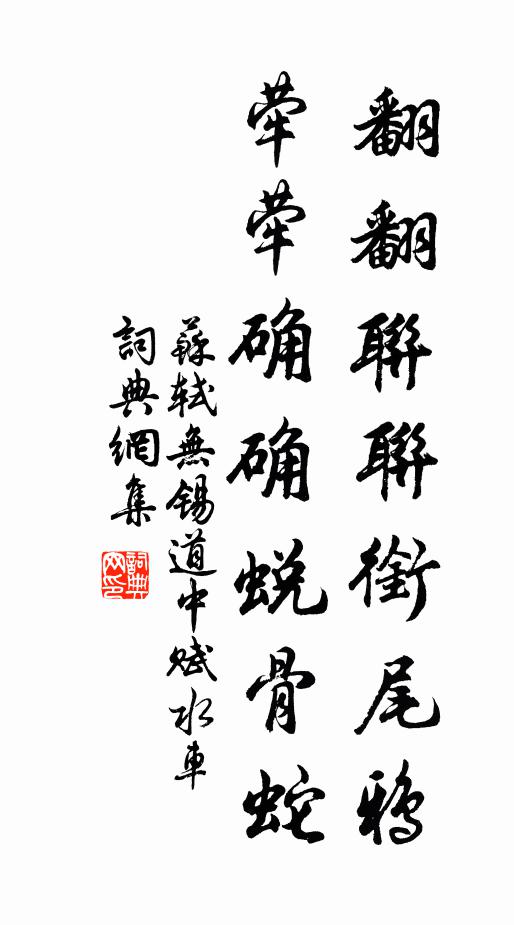 翻翻聯聯銜尾鴉
犖犖确确蜕骨蛇
蘇軾無錫道中賦水車
詞典網集
詞典网印